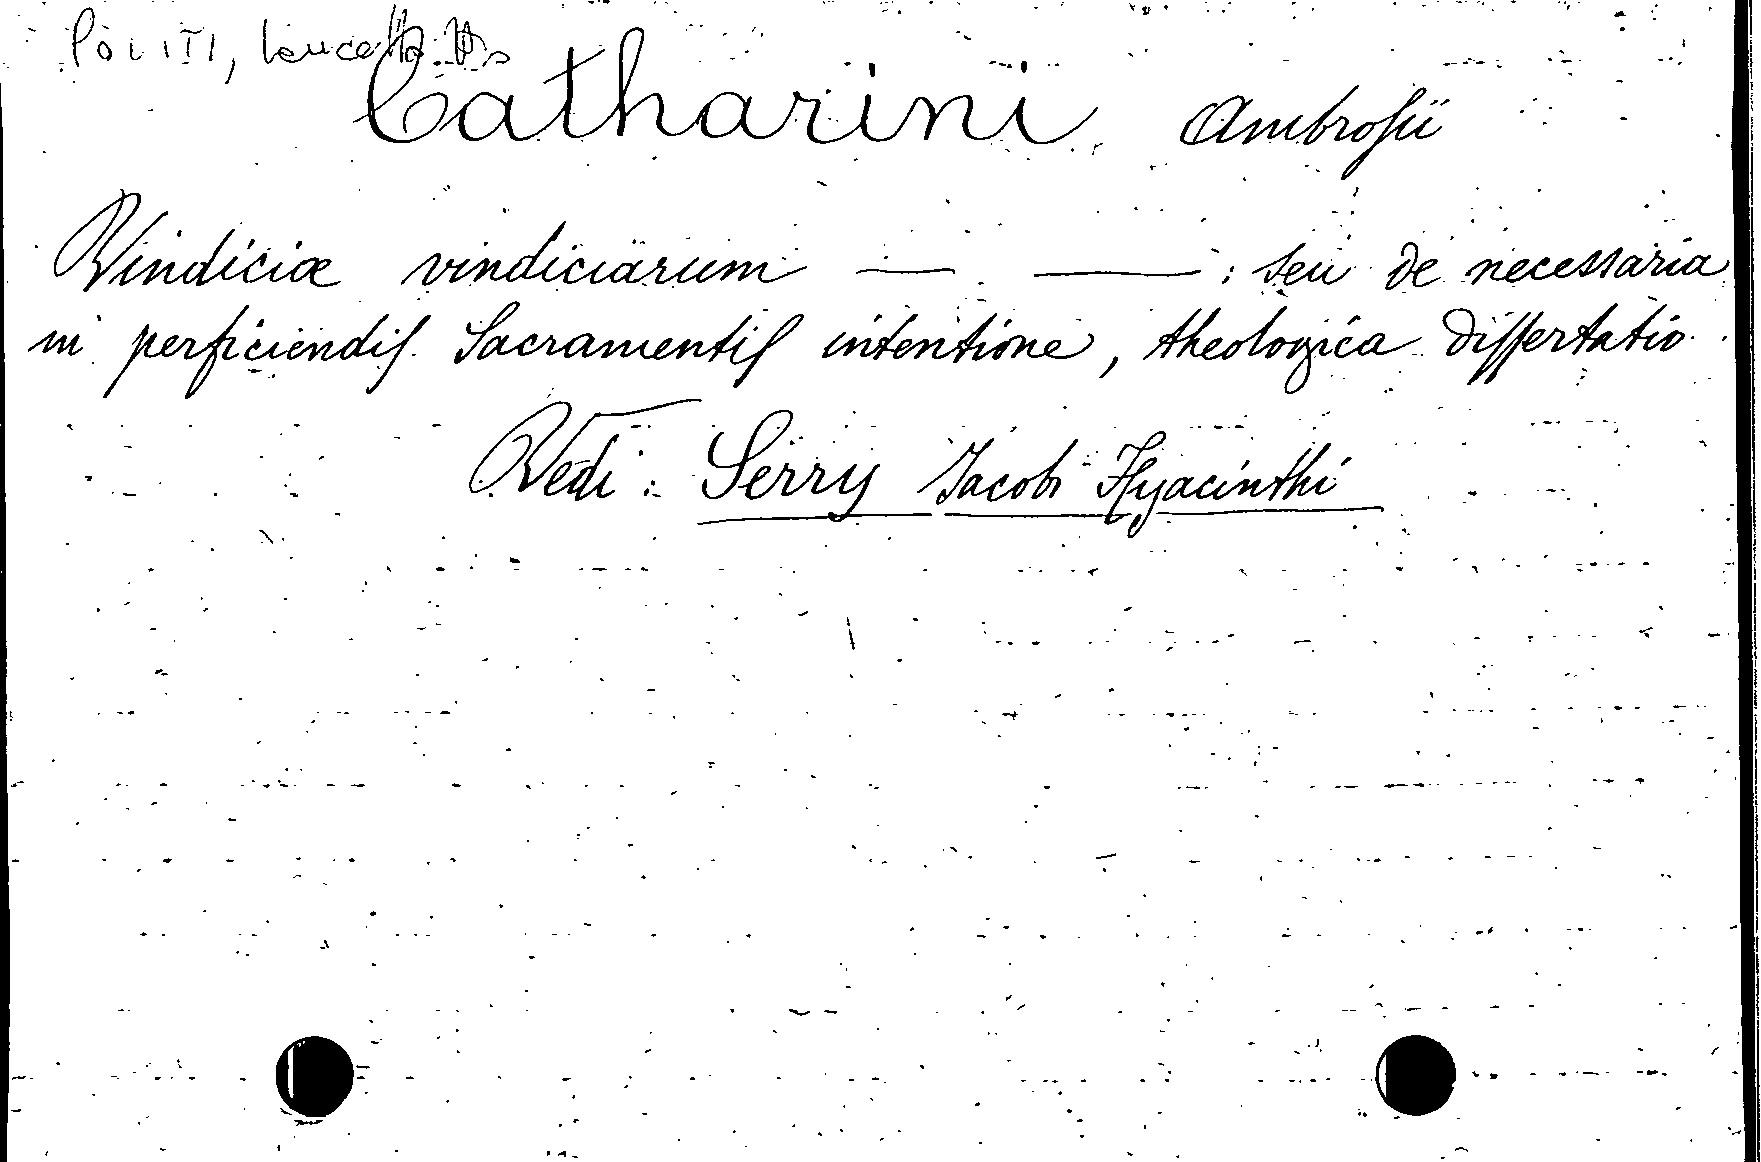 POLITI, Lancellotto
Catharini, Ambrosii
Vindiciæ vindiciarum — — : seu de necessaria
in perficiendis Sacramentis intentione, theologica dissertatio
Vedi : Serry Jacobi Hyacinthi